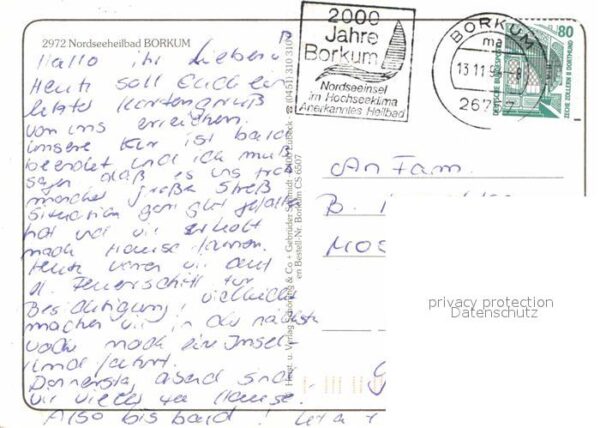 2972 Nordseeheilbad BORKUM
Hallo ihr Lieben!
Heute soll Euch ein
letzter Kartengruß
von uns erreichen.
unsere Kur ist bald
beendet und ich muß
sagen daß es uns trotz
mancher großer Streß
Situation ganz gut gefallen
hat und wir erholt
nach Hause fahren.
Heute waren wir auf
d. Feuerschiff zur
Besichtigung! vielleicht
machen wir in der nächsten
Woche noch ein Insel-
rundfahrt.
Donnerstag abend sind
wir wieder zu Hause.
Also bis bald!
Herst. u. Verlag Schöning & Co + Gebrüder Schmidt
(0451) 310 310
Bestell-Nr. Borkum CS 6507
2000
Jahre
Borkum
Nordseeinsel
im Hochseeklima
Anerkanntes Heilbad
BORKUM
ma
13.11.9
267
80
DEUTSCHE BUNDESPOST
ZECHE ZOLLERN II DORTMUND
An Fam.
B.
privacy protection
Datenschutz